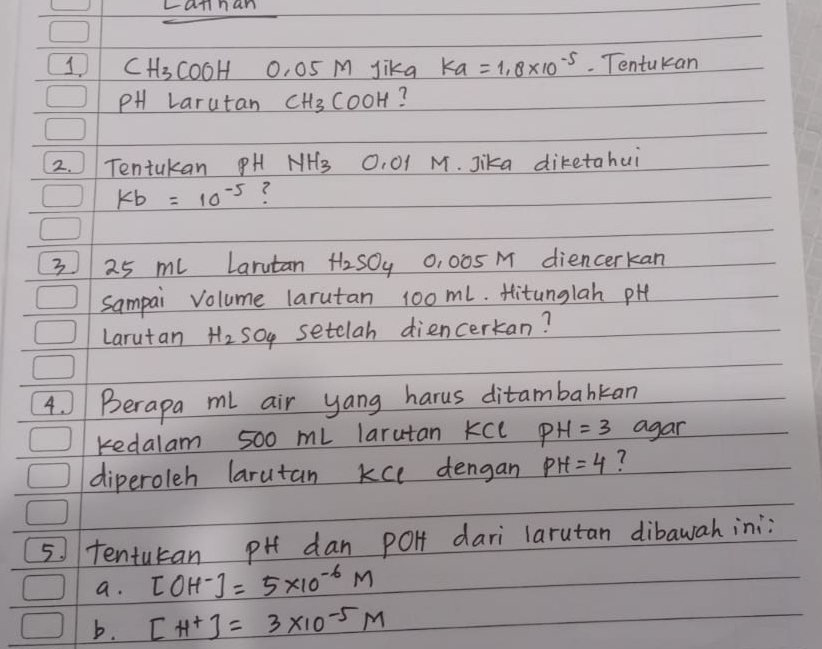 Latihan
1. CH3COOH 0,05 M Jika Ka = 1,8×10⁻⁵. Tentukan
PH Larutan CH3COOH?
2. Tentukan PH NH3 0.01 M. Jika diketahui
Kb = 10⁻⁵ ?
3. 25 mL Larutan H2SO4 0,005 M diencerkan
Sampai Volume larutan 100 mL. Hitunglah PH
Larutan H2SO4 setelah diencerkan?
4. Berapa mL air yang harus ditambahkan
kedalam 500 mL larutan KCl PH = 3 agar
diperoleh larutan KCl dengan PH = 4 ?
5. Tentukan PH dan POH dari larutan dibawah ini:
a. [OH⁻] = 5×10⁻⁶ M
b. [H⁺] = 3×10⁻⁵ M